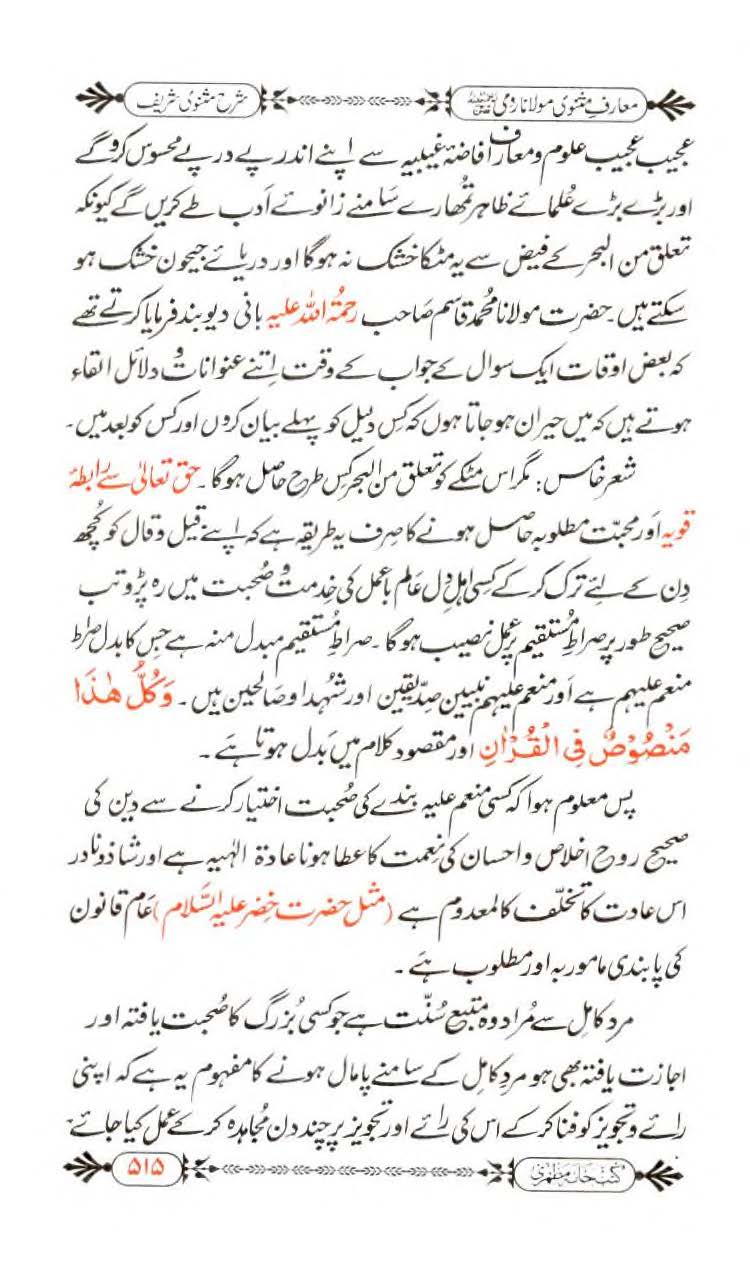 معارفِ مثنوی مولانا رومی رحمۃ اللہ علیہ
شرح مثنوی شریف
عجیب عجیب علوم و معارف افاضۂ غیبیہ سے اپنے اندر پے در پے محسوس کرو گے
اور بڑے بڑے عُلمائے ظاہر تمھارے سامنے زانوئے اَدب طے کریں گے کیونکہ
تعلق من البحر کے فیض سے یہ مٹکا خشک نہ ہوگا اور دریائے جیحون خشک ہو
سکتے ہیں۔ حضرت مولانا محمد قاسم صاحب رحمۃ اللہ علیہ بانی دیوبند فرمایا کرتے تھے
کہ بعض اوقات ایک سوال کے جواب کے وقت اِتنے عنوانات و دلائل القاء
ہوتے ہیں کہ میں حیران ہو جاتا ہوں کہ کِس دلیل کو پہلے بیان کروں اور کس کو بعد میں۔
شعر خامس: مگر اس مٹکے کو تعلق من البحر کس طرح حاصل ہوگا۔ حق تعالیٰ سے رابطۂ
قویہ اور محبّت مطلوبہ حاصل ہونے کا صِرف یہ طریقہ ہے کہ اپنے قیل و قال کو کُچھ
دِن کے لئے ترک کر کے کسی اہلِ دِل عالِم باعمل کی خِدمت و صُحبت میں رہ پڑو تب
صحیح طور پر صراطِ مُستقیم پر عمل نصیب ہوگا۔ صراطِ مُستقیم مبدل منہ ہے جس کا بدل صراط
منعم علیہم ہے اور منعم علیہم نبیین صِدّیقین اور شُہدا و صالحین ہیں۔ وَكُلُّ هٰذَا
مَنْصُوْصٌ فِي الْقُرْاٰنِ اور مقصود کلام میں بَدل ہوتا ہَے۔
پس معلوم ہوا کہ کسی منعم علیہ بندے کی صُحبت اختیار کرنے سے دین کی
صحیح روح اخلاص و احسان کی نِعمت کا عطا ہونا عادۃ الٰہیہ ہے اور شاذ و نادر
اس عادت کا تخلّف کالمعدوم ہے (مثل حضرت خِضر علیہ السَّلام) عَام قانون
کی پابندی مامور بہ اور مطلوب ہَے۔
مرد کامِل سے مُراد وہ متبع سُنّت ہے جو کسی بُزرگ کا صُحبت یافتہ اور
اجازت یافتہ بھی ہو مردِ کامِل کے سامنے پامال ہونے کا مفہوم یہ ہے کہ اپنی
رائے و تجویز کو فنا کر کے اس کی رائے اور تجویز پر چند دن مُجاہدہ کر کے عمل کیا جائے۔
کتب خانہ مظہری
۵۱۵